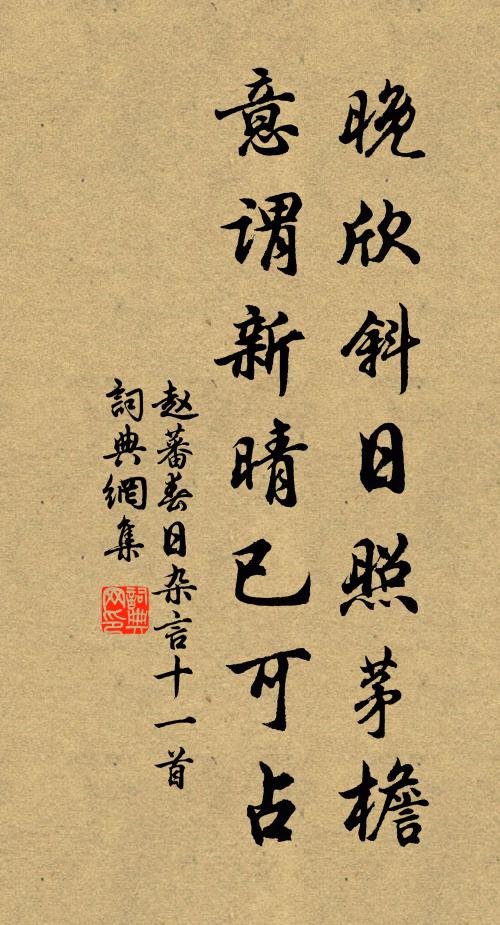 晚欣斜日照茅檐
意谓新晴已可占
赵蕃春日杂言十一首
詞典網集
詞典網印